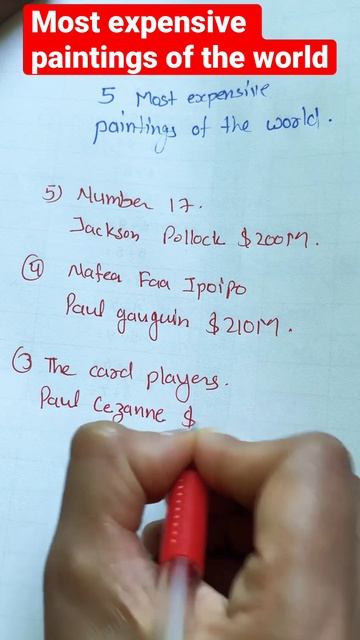 Most expensive
paintings of the world
5 Most expensive
paintings of the world.
5) Number 17.
Jackson Pollock $200M.
4 Nafea Faa Ipoipo
Paul gauguin $210M.
3 The card players.
Paul Cezanne $